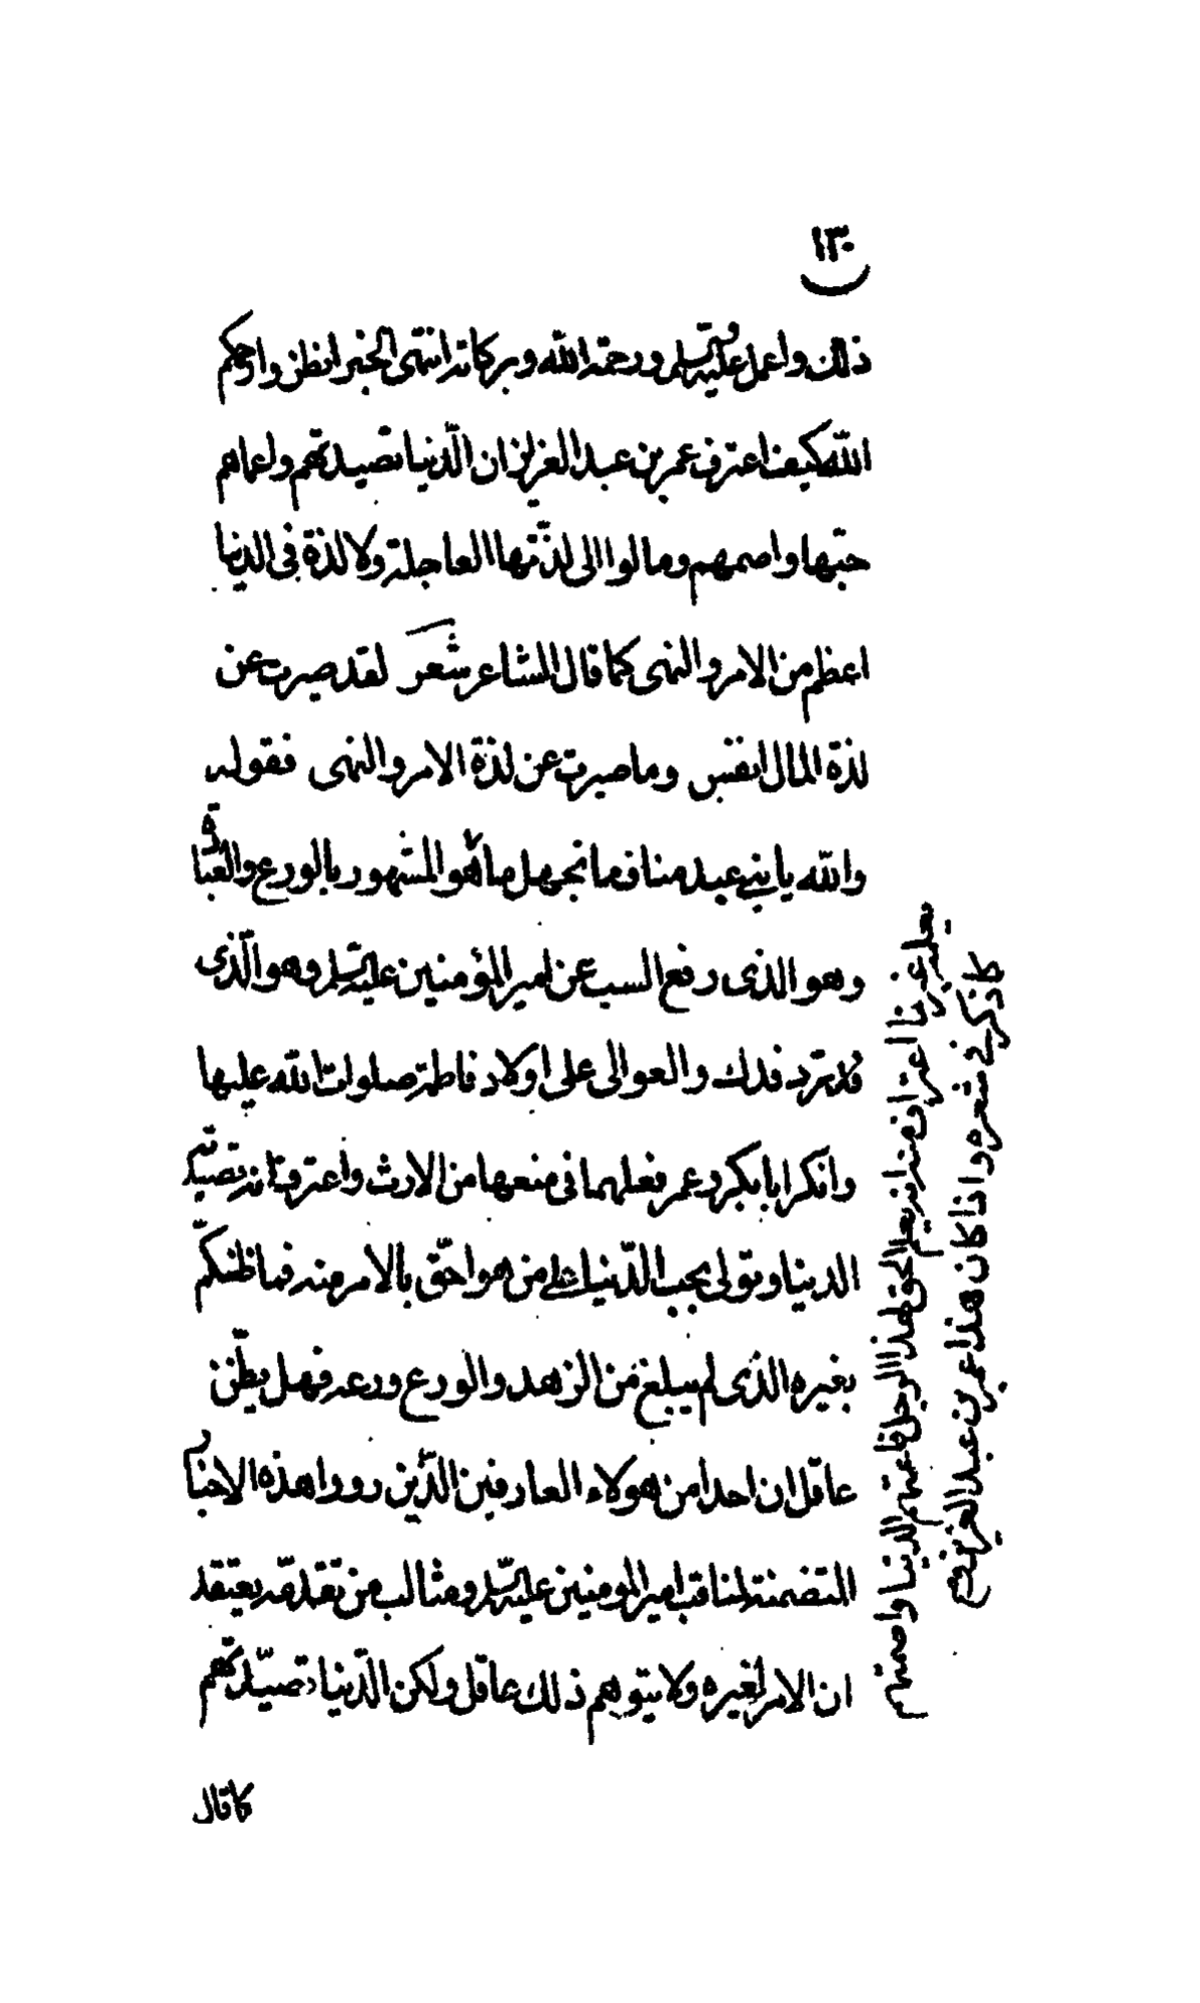 ١٣٠
ذلك واعمل عليه والسلم ورحمة الله وبركاته انتهى الخبر انظروا رحمكم
الله كيف اعترف عمر بن عبد العزيز ان الدنيا تصيدتهم واعماهم
حبّها واصمهم ومالوا الى لذّتها العاجلة ولا لذة فى الدنيا
اعظم من الامر والنهى كما قال الشاعر شعر لقد صبرت عن
لذة المال انفس وما صبرت عن لذة الامر والنهى فقوله
والله يا بنى عبد مناف ما نجهل ما هو المشهور بالورع والعبادة
وهو الذى رفع السب عن امير المؤمنين عليه السلم وهو الّذى
قد ترد فدك والعوالى على اولاد فاطمة صلوات الله عليها
وانكر ابا بكر وعمر فعلهما فى منعها من الارث واعترف بانه تصيدته
الدنيا وتولى بحب الدّنيا على من هو احقّ بالامر منه فما ظنكم
بغيره الذى لم يبلغ من الزهد والورع ورعه فهل يظنن
عاقل ان احدا من هولاء العارفين الذّين رووا هذه الاخبار
المتضمنة لمناقب امير المومنين عليه السلم ومثالب من تقدمه يعتقد
ان الامر لغيره ولا يتوهم ذلك عاقل ولكن الدّنيا تصيّدتهم
كما قال
يعلم غيرنا اعتراف منه انه يعلم الحق لهذا الرجل فاعمتهم الدنيا واصمتهم
كما ذكر فى شعره واذا كان هذا عمر بن عبد العزيز